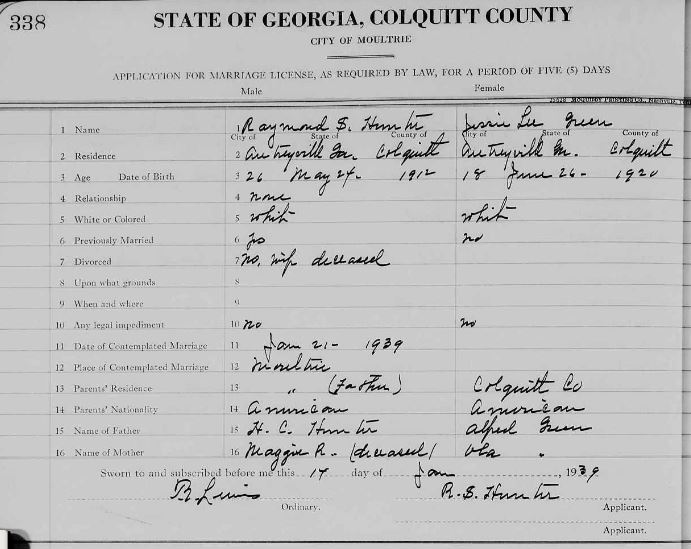 338
STATE OF GEORGIA, COLQUITT COUNTY
CITY OF MOULTRIE
APPLICATION FOR MARRIAGE LICENSE, AS REQUIRED BY LAW, FOR A PERIOD OF FIVE (5) DAYS
Male Female
1 Name 1 Raymond S. Hunter Jessie Lee Green
City of State of County of City of State of County of
2 Residence 2 Autreyville Ga. Colquitt Autreyville Ga. Colquitt
3 Age Date of Birth 3 26 May 24- 1912 18 June 26- 1920
4 Relationship 4 none
5 White or Colored 5 white white
6 Previously Married 6 no
7 Divorced 7 no, wife deceased
8 Upon what grounds 8
9 When and where 9
10 Any legal impediment 10 no no
11 Date of Contemplated Marriage 11 Jan 21- 1939
12 Place of Contemplated Marriage 12 Moultrie
13 Parents' Residence 13 " (Father) Colquitt Co
14 Parents' Nationality 14 American American
15 Name of Father 15 H. C. Hunter Alfred Green
16 Name of Mother 16 Maggie R. (deceased) Ola "
Sworn to and subscribed before me this 17 day of Jan , 1939
Lewis R. S. Hunter
Ordinary. Applicant.
Applicant.